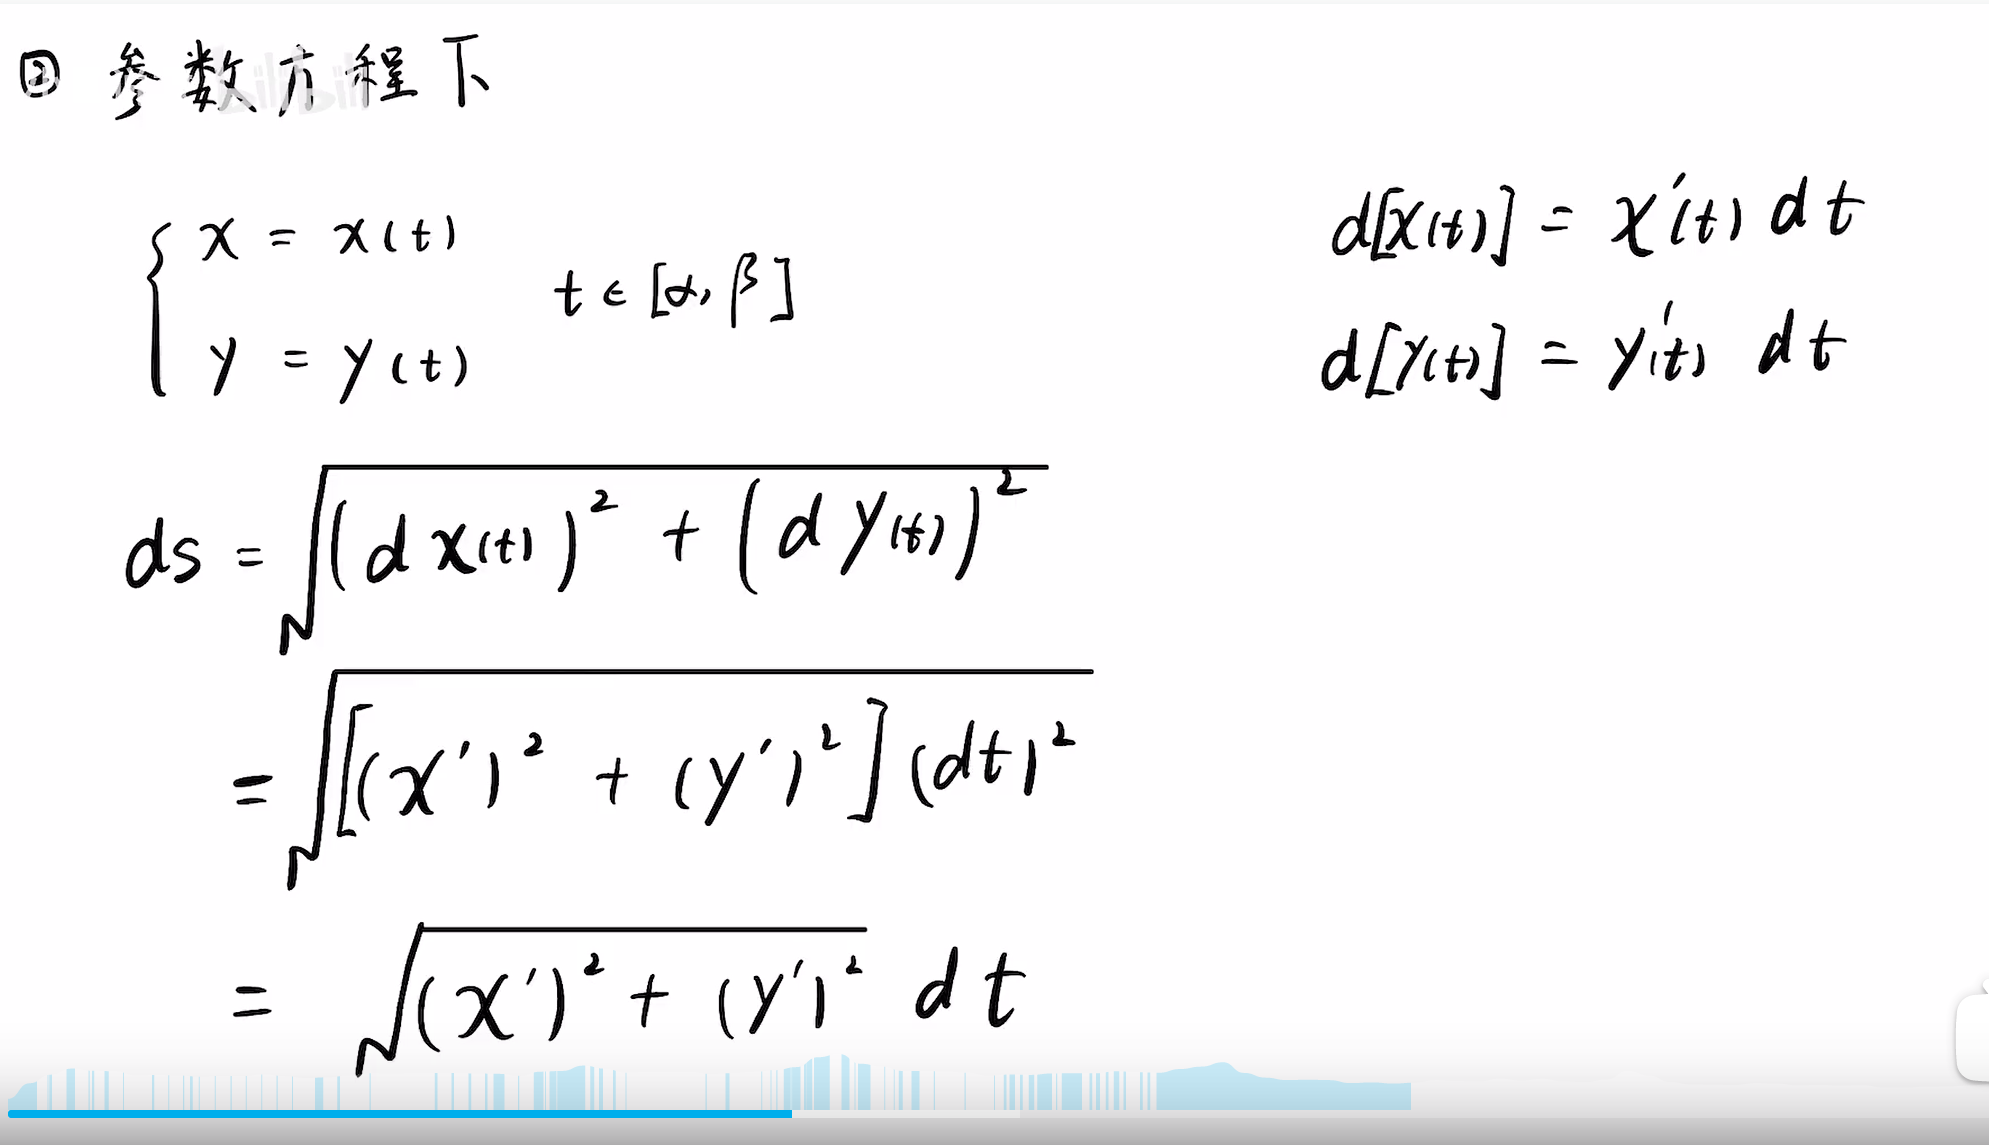 ② 参数方程下
{ x = x(t)
y = y(t)
t ∈ [α, β]
d[x(t)] = x'(t) dt
d[y(t)] = y'(t) dt
ds = √((d x(t))² + (d y(t))²)
= √([(x')² + (y')²](dt)²)
= √((x')² + (y')²) dt
bilibili